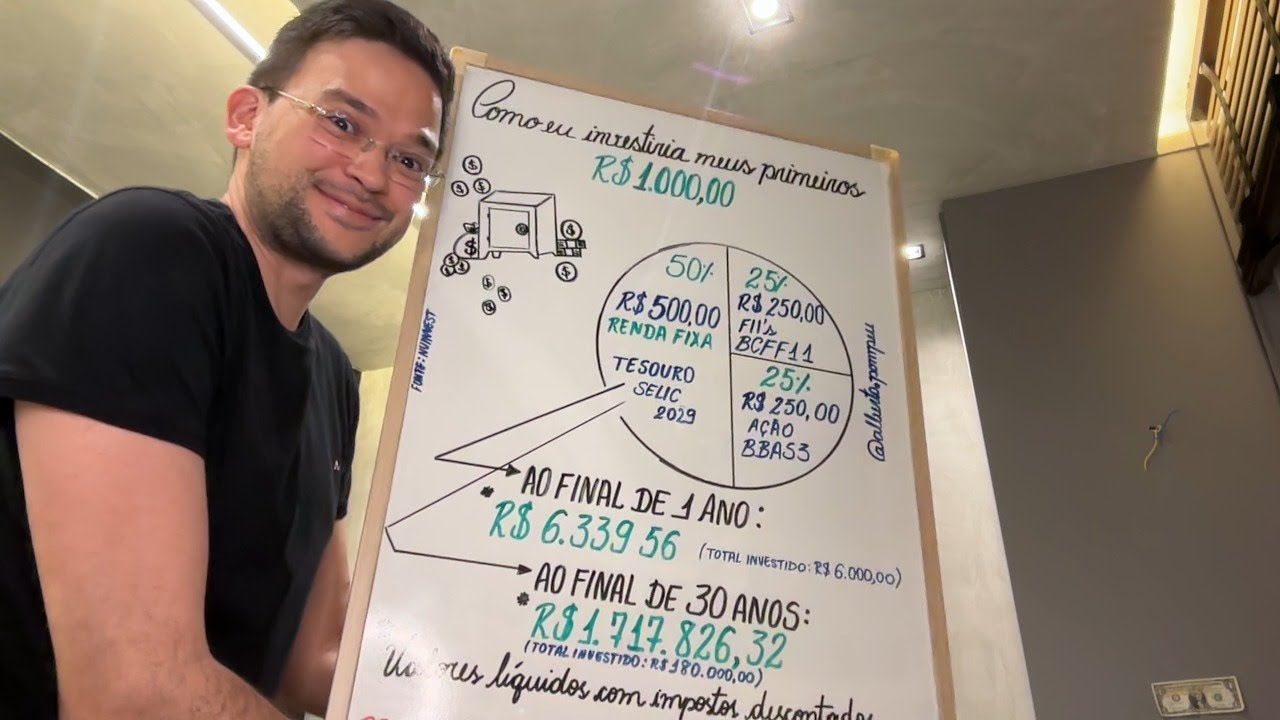 Como eu investiria meus primeiros
R$1.000,00
50%
R$500,00
RENDA FIXA
TESOURO
SELIC
2029
25%
R$250,00
FII's
BCFF11
25%
R$250,00
AÇÃO
BBAS3
FONTE: NUINVEST
@alberto.pompeu
AO FINAL DE 1 ANO:
* R$ 6.339 56 (TOTAL INVESTIDO: R$ 6.000,00)
AO FINAL DE 30 ANOS:
* R$1.717.826,32
(TOTAL INVESTIDO: R$ 180.000,00)
Valores líquidos com impostos descontados